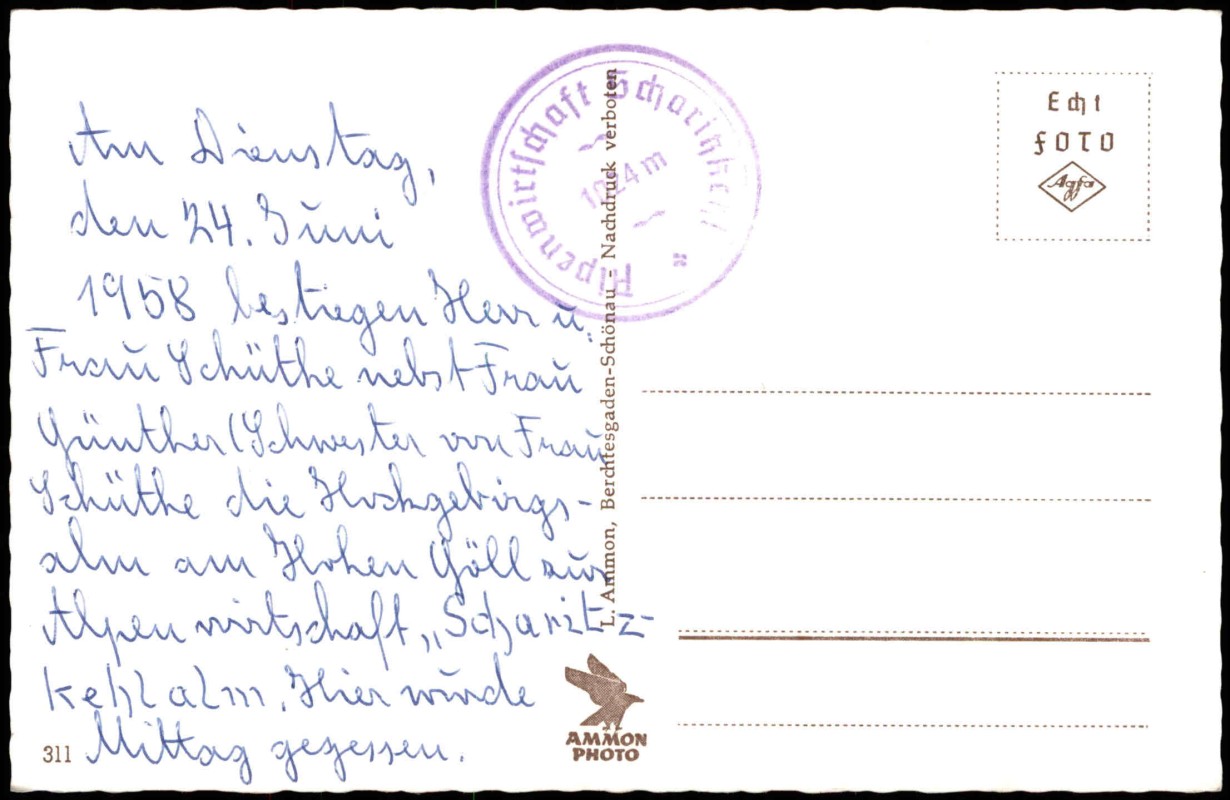 Am Dienstag,
den 24. Juni
1958 bestiegen Herr u.
Frau Schüthe nebst Frau
Günther (Schwester von Frau
Schüthe die Hochgebirgs-
alm am Hohen Göll zur
Alpenwirtschaft „Scharitz-
kehlalm. Hier wurde
Mittag gegessen.
311
Alpenwirtschaft Scharitzkehl
1024 m
L. Ammon, Berchtesgaden-Schönau - Nachdruck verboten
AMMON
PHOTO
Echt
FOTO
Agfa